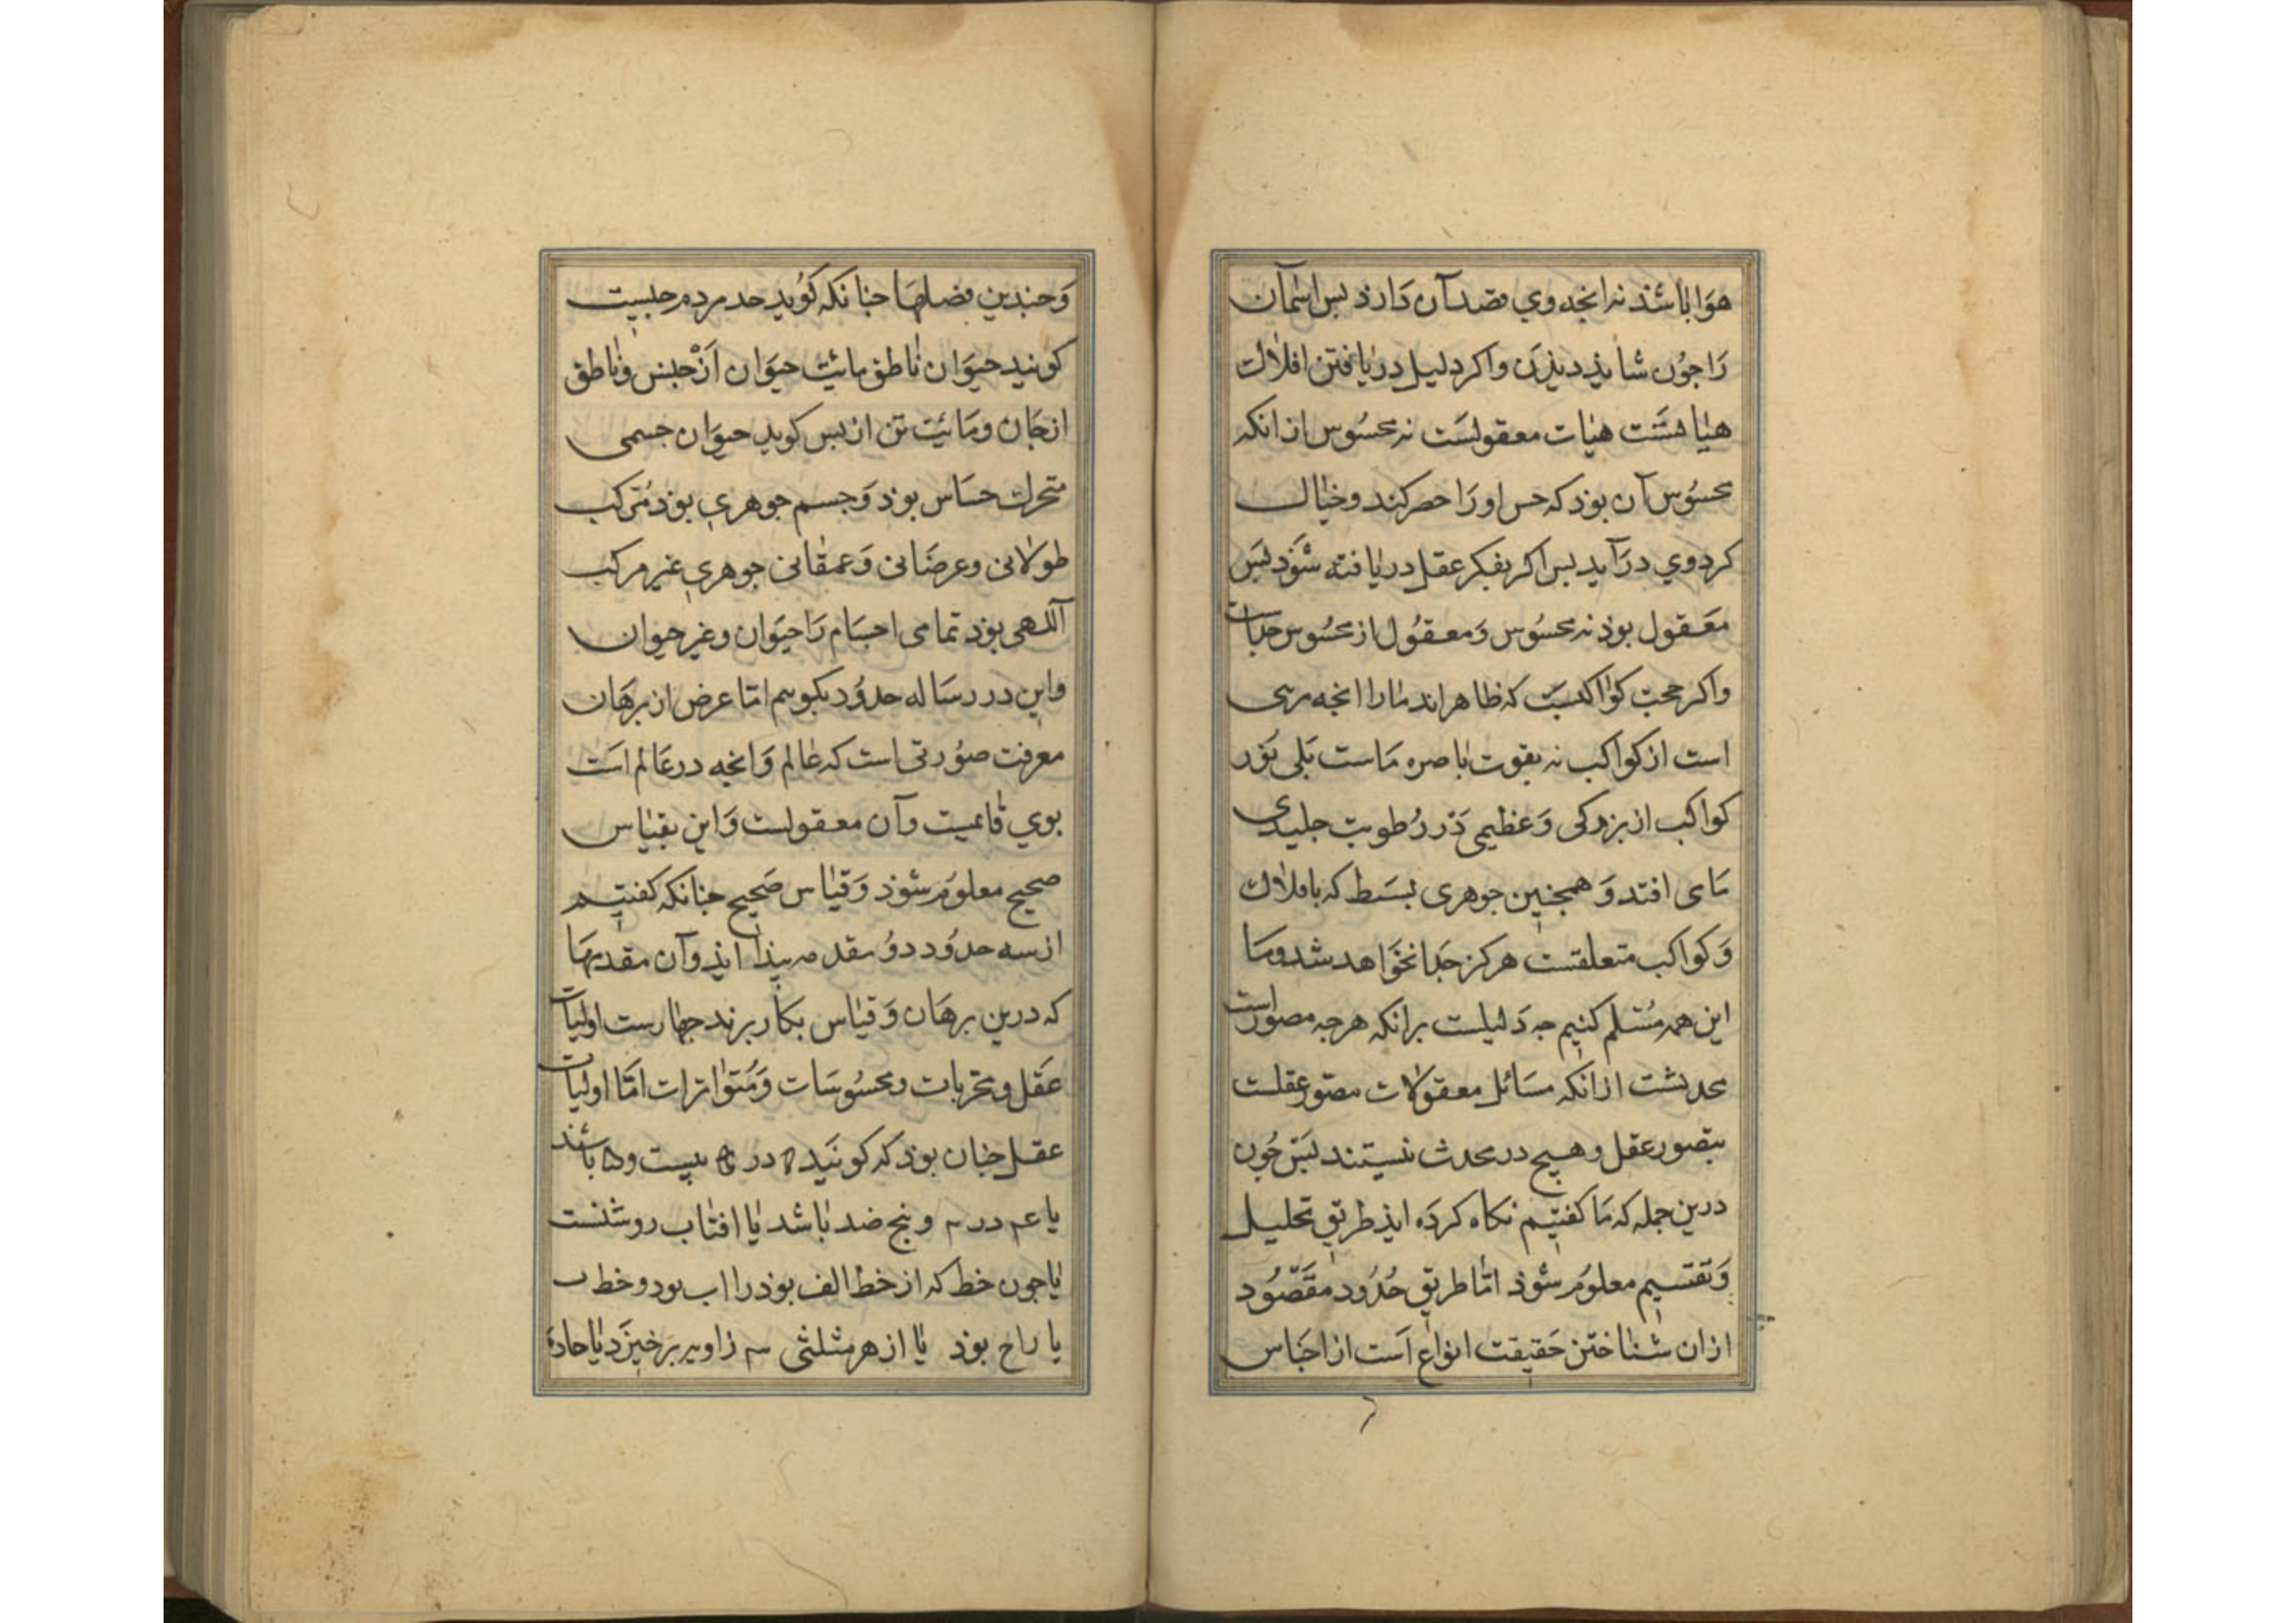 هوا باشذ نه انجه وي قصد آن دارذ بس اسمان
را جون شايذ ديذن واكر دليل دريافتن افلاك
هيات معقولست نه محسوس از انكه
محسوس آن بوذ كه حس او را حصر كند وخيال
كرد وي درآيد بس اكر بفكر عقل دريافته شوذ بس
معقول بوذ نه محسوس ومعقول از محسوس جداست
واكر حجت كواكبست كه ظاهراند مارا انجه مرئى
است از كواكب نه بقوت باصره ماست بلى نور
كواكب از بزركى وعظيمى در رطوبت جليدى
ماى افتد وهمجنين جوهرى بسط كه بافلاك
وكواكب متعلقست هركز جدا نخواهد شد وما
اين همه مسلم كنيم جه دليلست برانكه هرجه مصور است
محدثست از انكه مسائل معقولات مصور عقلست
بتصور عقل وهيج در محدث نيستند بس جون
درين جمله كه ما كفتيم نكاه كرده ايذ طريق تحليل
وتقسيم معلوم شوذ اما طريق حدود مقصود
ازان شناختن حقيقت انواع است از اجناس
وجندين فصلها جنانكه كويد حد مردم جيست
كويند حيوان ناطق مائيت حيوان از جنس وناطق
از جان ومائيت تن از بس كويد حيوان جسمى
متحرك حساس بوذ وجسم جوهري بوذ مركب
طولانى وعرضانى وعمقانى جوهري غير مركب
آلهى بوذ تمامى اجسام را حيوان وغير حيوان
واين در رساله حدود بكويم اما عرض از برهان
معرفت صورتى است كه عالم وانجه در عالم است
بوي قايمست وآن معقولست واين بقياس
صحيح معلوم شوذ وقياس صحيح جنانكه كفتيم
از سه حدود دو مقدمه بيذا ايذ وآن مقدمها
كه درين برهان وقياس بكار برند جهارست اوليات
عقل ومجربات ومحسوسات ومتواترات اما اوليات
عقل جنان بوذ كه كويند ۵ در ۵ بيست و۵ باشد
يا در وبنج ضد باشد يا افتاب روشنست
يا جون خط كه از خط الف بوذ را اب بود وخط ب
يا راح بوذ يا از هر مثلثى سه زاويه برخيزد يا حاده